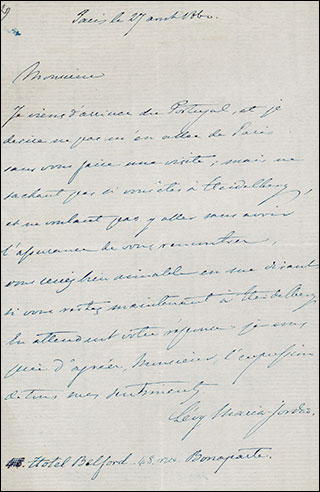 Paris le 27 avril 1860.
Monsieur
Je viens d'arriver du Portugal, et je
desire ne pas m'en aller de Paris
sans vous faire une visite; mais ne
sachant pas si vous êtes à Heidelberg,
et ne voulant pas y aller sans avoir
l'assurance de vous rencontrer,
vous seriez bien aimable en me disant
si vous restez maintenant à Heidelberg.
En attendant votre reponse je vous
prie d'agréer, Monsieur, l'expression
de tous mes sentiments
Levy Maria Jordão
Hotel Belford - 48, rue Bonaparte.